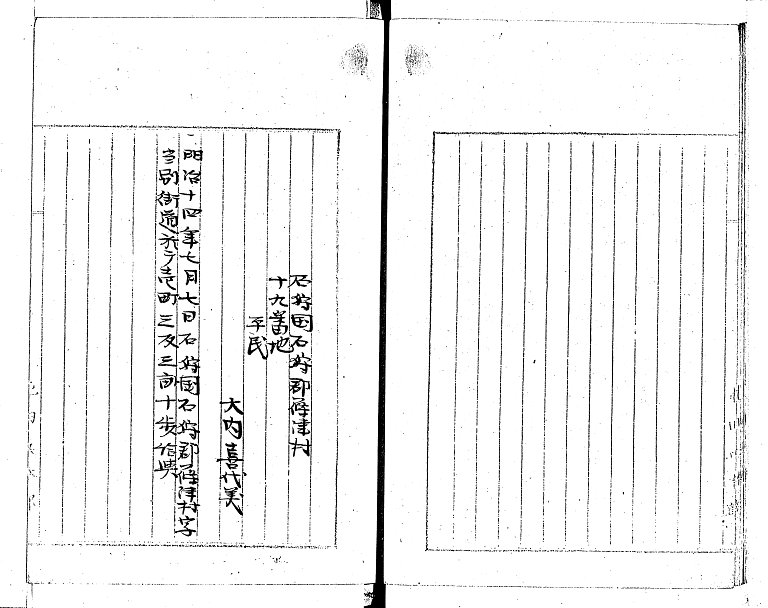 石狩国石狩郡篠津村
十九番地
平民
大内喜代美
一明治十四年七月七日石狩国石狩郡篠津村字
当別街道ニ於テ壱町三反三畝十歩給与